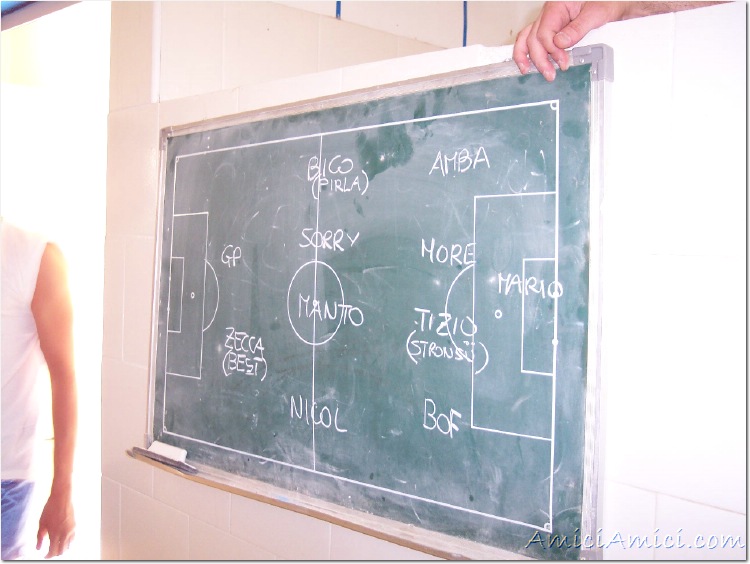 BICO
(PIRLA)
AMBA
GP
SORRY
MORE
MARIO
MANTO
ZECCA
(BEST)
TIZIO
(STRONSÜ)
NICOL
BOF
AmiciAmici.com